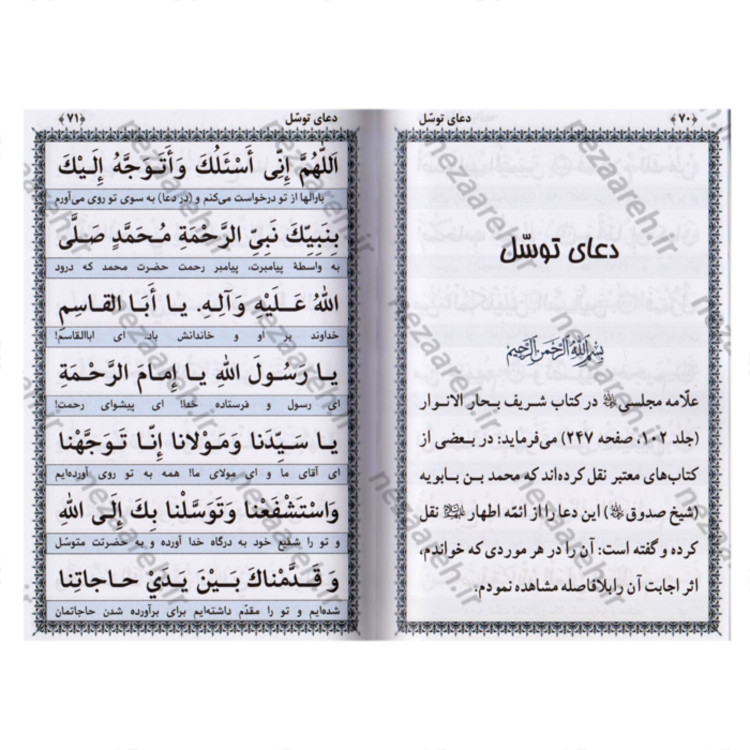 ﴿۷۰﴾ دعای توسّل
دعای توسّل
بِسْمِ اللهِ الرَّحْمنِ الرَّحِيمِ
علّامه مجلسی در کتاب شریف بحار الانوار
(جلد ۱۰۲، صفحه ۲۴۷) می‌فرماید: در بعضی از
کتاب‌های معتبر نقل کرده‌اند که محمد بـن بـابو یه
(شیخ صدوق) این دعا را از ائمّه اطهار نقل
کرده و گفته است: آن را در هر موردی که خواندم،
اثر اجابت آن را بلافاصله مشاهده نمودم.
دعای توسّل ﴿۷۱﴾
اَللّٰهُمَّ إِنِّى أَسْئَلُكَ وَأَتَوَجَّهُ إِلَيْكَ
بارالها از تو درخواست می‌کنم و (در دعا) به سوی تو روی می‌آورم
بِنَبِيِّكَ نَبِىِّ الرَّحْمَةِ مُحَمَّدٍ صَلَّى
به واسطهٔ پیامبرت، پیامبر رحمت حضرت محمد که درود
اللهُ عَلَيْهِ وَآلِهِ. يا أَبَا القاسِمِ
خداوند بر او و خاندانش باد، ای اباالقاسم!
يا رَسُولَ اللهِ يا إِمامَ الرَّحْمَةِ
ای رسول و فرستاده خدا! ای پیشوای رحمت!
يا سَيِّدَنا وَمَوْلانا إِنّا تَوَجَّهْنا
ای آقای ما و ای مولای ما! همه به تو روی آورده‌ایم
وَاسْتَشْفَعْنا وَتَوَسَّلْنا بِكَ إِلَى اللهِ
و تو را شفیع خود به درگاه خدا آورده و به حضرتت متوسّل
وَ قَدَّمْناكَ بَيْنَ يَدَيْ حاجاتِنا
شده‌ایم و تو را مقدّم داشته‌ایم برای برآورده شدن حاجاتمان
nezaareh.ir